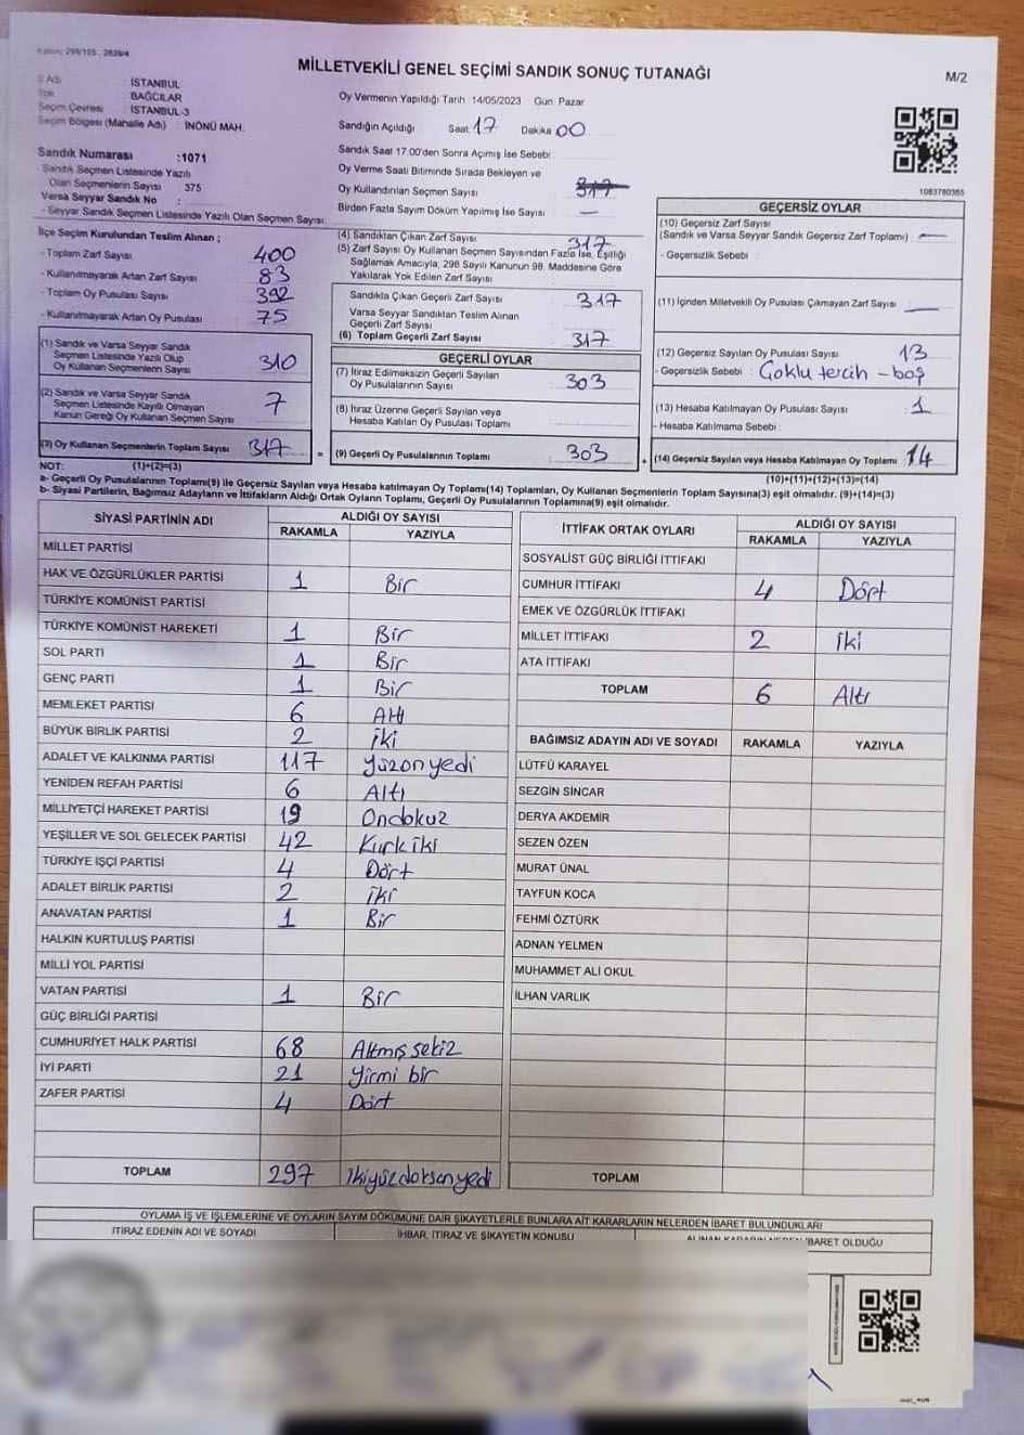 MİLLETVEKİLİ GENEL SEÇİMİ SANDIK SONUÇ TUTANAĞI
M/2
İl Adı İSTANBUL
İlçe BAĞCILAR
Seçim Çevresi İSTANBUL-3
Seçim Bölgesi (Mahalle Adı) : İNÖNÜ MAH.
Sandık Numarası :1071
- Sandık Seçmen Listesinde Yazılı
Olan Seçmenlerin Sayısı 375
Varsa Seyyar Sandık No :
- Seyyar Sandık Seçmen Listesinde Yazılı Olan Seçmen Sayısı:
Oy Vermenin Yapıldığı Tarih 14/05/2023 Gün Pazar
Sandığın Açıldığı Saat 17 Dakika 00
Sandık Saat 17:00'den Sonra Açılmış İse Sebebi
Oy Verme Saati Bitiminde Sırada Bekleyen ve
Oy Kullandırılan Seçmen Sayısı 317
Birden Fazla Sayım Döküm Yapılmış İse Sayısı —
1083780365
İlçe Seçim Kurulundan Teslim Alınan ;
- Toplam Zarf Sayısı 400
- Kullanılmayarak Artan Zarf Sayısı 83
- Toplam Oy Pusulası Sayısı 392
- Kullanılmayarak Artan Oy Pusulası 75
(1) Sandık ve Varsa Seyyar Sandık
Seçmen Listesinde Yazılı Olup
Oy Kullanan Seçmenlerin Sayısı 310
(2) Sandık ve Varsa Seyyar Sandık
Seçmen Listesinde Kayıtlı Olmayan
Kanun Gereği Oy Kullanan Seçmen Sayısı 7
(3) Oy Kullanan Seçmenlerin Toplam Sayısı 317
(4) Sandıktan Çıkan Zarf Sayısı 317
(5) Zarf Sayısı Oy Kullanan Seçmen Sayısından Fazla İse, Eşitliği
Sağlamak Amacıyla, 298 Sayılı Kanunun 98. Maddesine Göre
Yakılarak Yok Edilen Zarf Sayısı
Sandıkta Çıkan Geçerli Zarf Sayısı 317
Varsa Seyyar Sandıktan Teslim Alınan
Geçerli Zarf Sayısı
(6) Toplam Geçerli Zarf Sayısı 317
GEÇERLİ OYLAR
(7) İtiraz Edilmeksizin Geçerli Sayılan
Oy Pusulalarının Sayısı 303
(8) İtiraz Üzerine Geçerli Sayılan veya
Hesaba Katılan Oy Pusulası Toplamı
= (9) Geçerli Oy Pusulalarının Toplamı 303
GEÇERSİZ OYLAR
(10) Geçersiz Zarf Sayısı
(Sandık ve Varsa Seyyar Sandık Geçersiz Zarf Toplamı) —
- Geçersizlik Sebebi :
(11) İçinden Milletvekili Oy Pusulası Çıkmayan Zarf Sayısı —
(12) Geçersiz Sayılan Oy Pusulası Sayısı 13
- Geçersizlik Sebebi : Çoklu tercih - boş
(13) Hesaba Katılmayan Oy Pusulası Sayısı 1
- Hesaba Katılmama Sebebi :
+ (14) Geçersiz Sayılan veya Hesaba Katılmayan Oy Toplamı 14
NOT: (1)+(2)=(3)
(10)+(11)+(12)+(13)=(14)
a- Geçerli Oy Pusulalarının Toplamı(9) ile Geçersiz Sayılan veya Hesaba Katılmayan Oy Toplamı(14) Toplamları, Oy Kullanan Seçmenlerin Toplam Sayısına(3) eşit olmalıdır. (9)+(14)=(3)
b- Siyasi Partilerin, Bağımsız Adayların ve İttifakların Aldığı Ortak Oyların Toplamı, Geçerli Oy Pusulalarının Toplamına(9) eşit olmalıdır.
SİYASİ PARTİNİN ADI ALDIĞI OY SAYISI
RAKAMLA YAZIYLA
MİLLET PARTİSİ
HAK VE ÖZGÜRLÜKLER PARTİSİ 1 Bir
TÜRKİYE KOMÜNİST PARTİSİ
TÜRKİYE KOMÜNİST HAREKETİ 1 Bir
SOL PARTİ 1 Bir
GENÇ PARTİ 1 Bir
MEMLEKET PARTİSİ 6 Altı
BÜYÜK BİRLİK PARTİSİ 2 İki
ADALET VE KALKINMA PARTİSİ 117 Yüzonyedi
YENİDEN REFAH PARTİSİ 6 Altı
MİLLİYETÇİ HAREKET PARTİSİ 19 Ondokuz
YEŞİLLER VE SOL GELECEK PARTİSİ 42 Kırkiki
TÜRKİYE İŞÇİ PARTİSİ 4 Dört
ADALET BİRLİK PARTİSİ 2 iki
ANAVATAN PARTİSİ 1 Bir
HALKIN KURTULUŞ PARTİSİ
MİLLİ YOL PARTİSİ
VATAN PARTİSİ 1 Bir
GÜÇ BİRLİĞİ PARTİSİ
CUMHURİYET HALK PARTİSİ 68 Altmış sekiz
İYİ PARTİ 21 Yirmi bir
ZAFER PARTİSİ 4 Dört
TOPLAM 297 İkiyüzdoksanyedi
İTTİFAK ORTAK OYLARI ALDIĞI OY SAYISI
RAKAMLA YAZIYLA
SOSYALİST GÜÇ BİRLİĞİ İTTİFAKI
CUMHUR İTTİFAKI 4 Dört
EMEK VE ÖZGÜRLÜK İTTİFAKI
MİLLET İTTİFAKI 2 iki
ATA İTTİFAKI
TOPLAM 6 Altı
BAĞIMSIZ ADAYIN ADI VE SOYADI RAKAMLA YAZIYLA
LÜTFÜ KARAYEL
SEZGİN SİNCAR
DERYA AKDEMİR
SEZEN ÖZEN
MURAT ÜNAL
TAYFUN KOCA
FEHMİ ÖZTÜRK
ADNAN YELMEN
MUHAMMET ALİ OKUL
İLHAN VARLIK
TOPLAM
OYLAMA İŞ VE İŞLEMLERİNE VE OYLARIN SAYIM DÖKÜMÜNE DAİR ŞİKAYETLERLE BUNLARA AİT KARARLARIN NELERDEN İBARET BULUNDUKLARI
İTİRAZ EDENİN ADI VE SOYADI İHBAR, İTİRAZ VE ŞİKAYETİN KONUSU ALINAN KARARIN NEDEN İBARET OLDUĞU